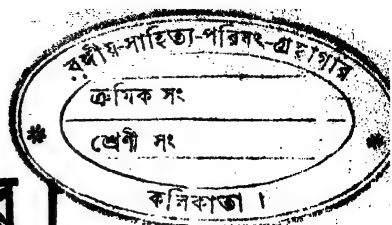 বঙ্গীয়-সাহিত্য-পরিষৎ-গ্রন্থাগার
ক্রমিক সং
শ্রেণী সং
কলিকাতা ।
র ।